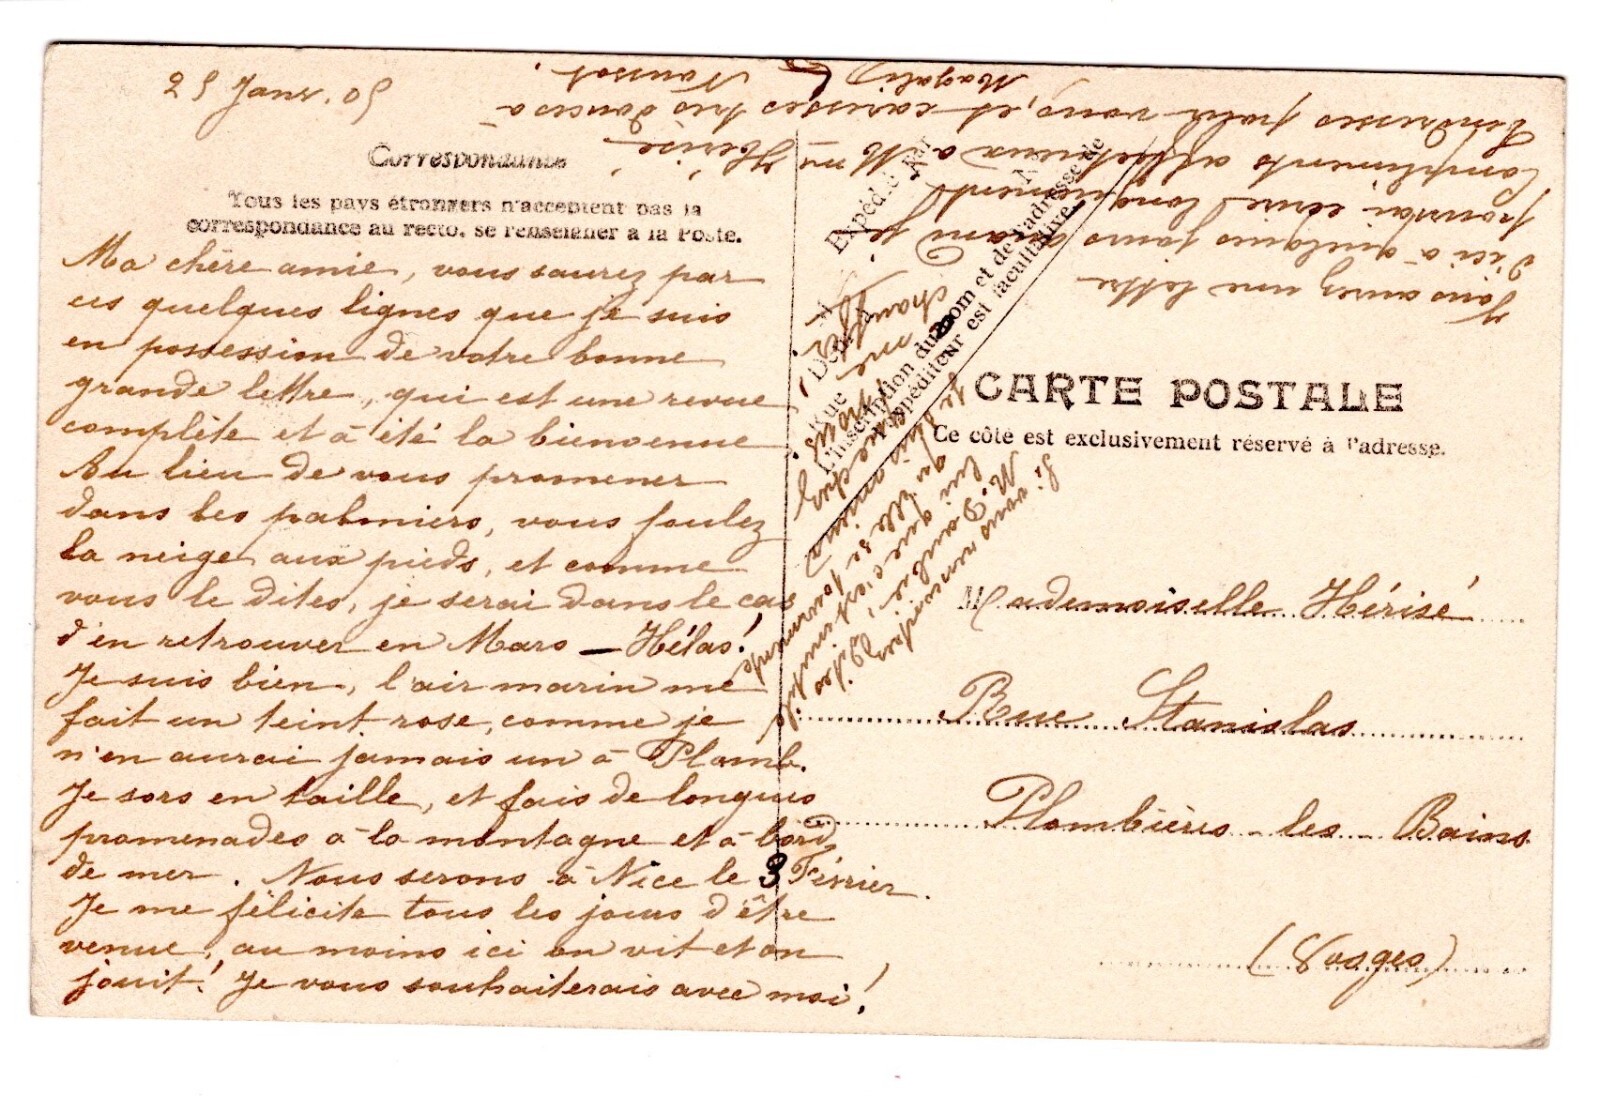 25 Janv. 05
Correspondance
Tous les pays étrangers n'acceptent pas la
correspondance au recto, se renseigner à la Poste.
Ma chère amie, vous saurez par
ces quelques lignes que je suis
en possession de votre bonne
grande lettre, qui est une revue
complète et à été la bienvenue
Au lieu de vous promener
dans les palmiers, vous foulez
la neige aux pieds, et comme
vous le dites, je serai dans le cas
d'en retrouver en Mars - Hélas!
Je suis bien, l'air marin me
fait un teint rose, comme je
n'en aurai jamais un à Plomb.
Je sors en taille, et fais de longues
promenades à la montagne et à bord
de mer. Nous serons à Nice le 3 Février.
Je me félicite tous les jours d'être
venue, au moins ici on vit et on
jouit! Je vous souhaiterais avec moi!
Si vous rencontrez
M. Dites
lui que c'est inutile
qu'elle se tourmente
Vous aurez une lettre
d'ici à quelques jours quand je
pourrai écrire longuement
Compliments affectueux à Mme Hérisé
Tendresses pour vous, et caresses très douces à
Magali
Expédié par
M
Rue
N
Dépt
L'inscription du nom et de l'adresse de
l'expéditeur est facultative.
CARTE POSTALE
Ce côté est exclusivement réservé à l'adresse.
Mademoiselle Hérisé
Rue Stanislas
Plombières-les-Bains
(Vosges)